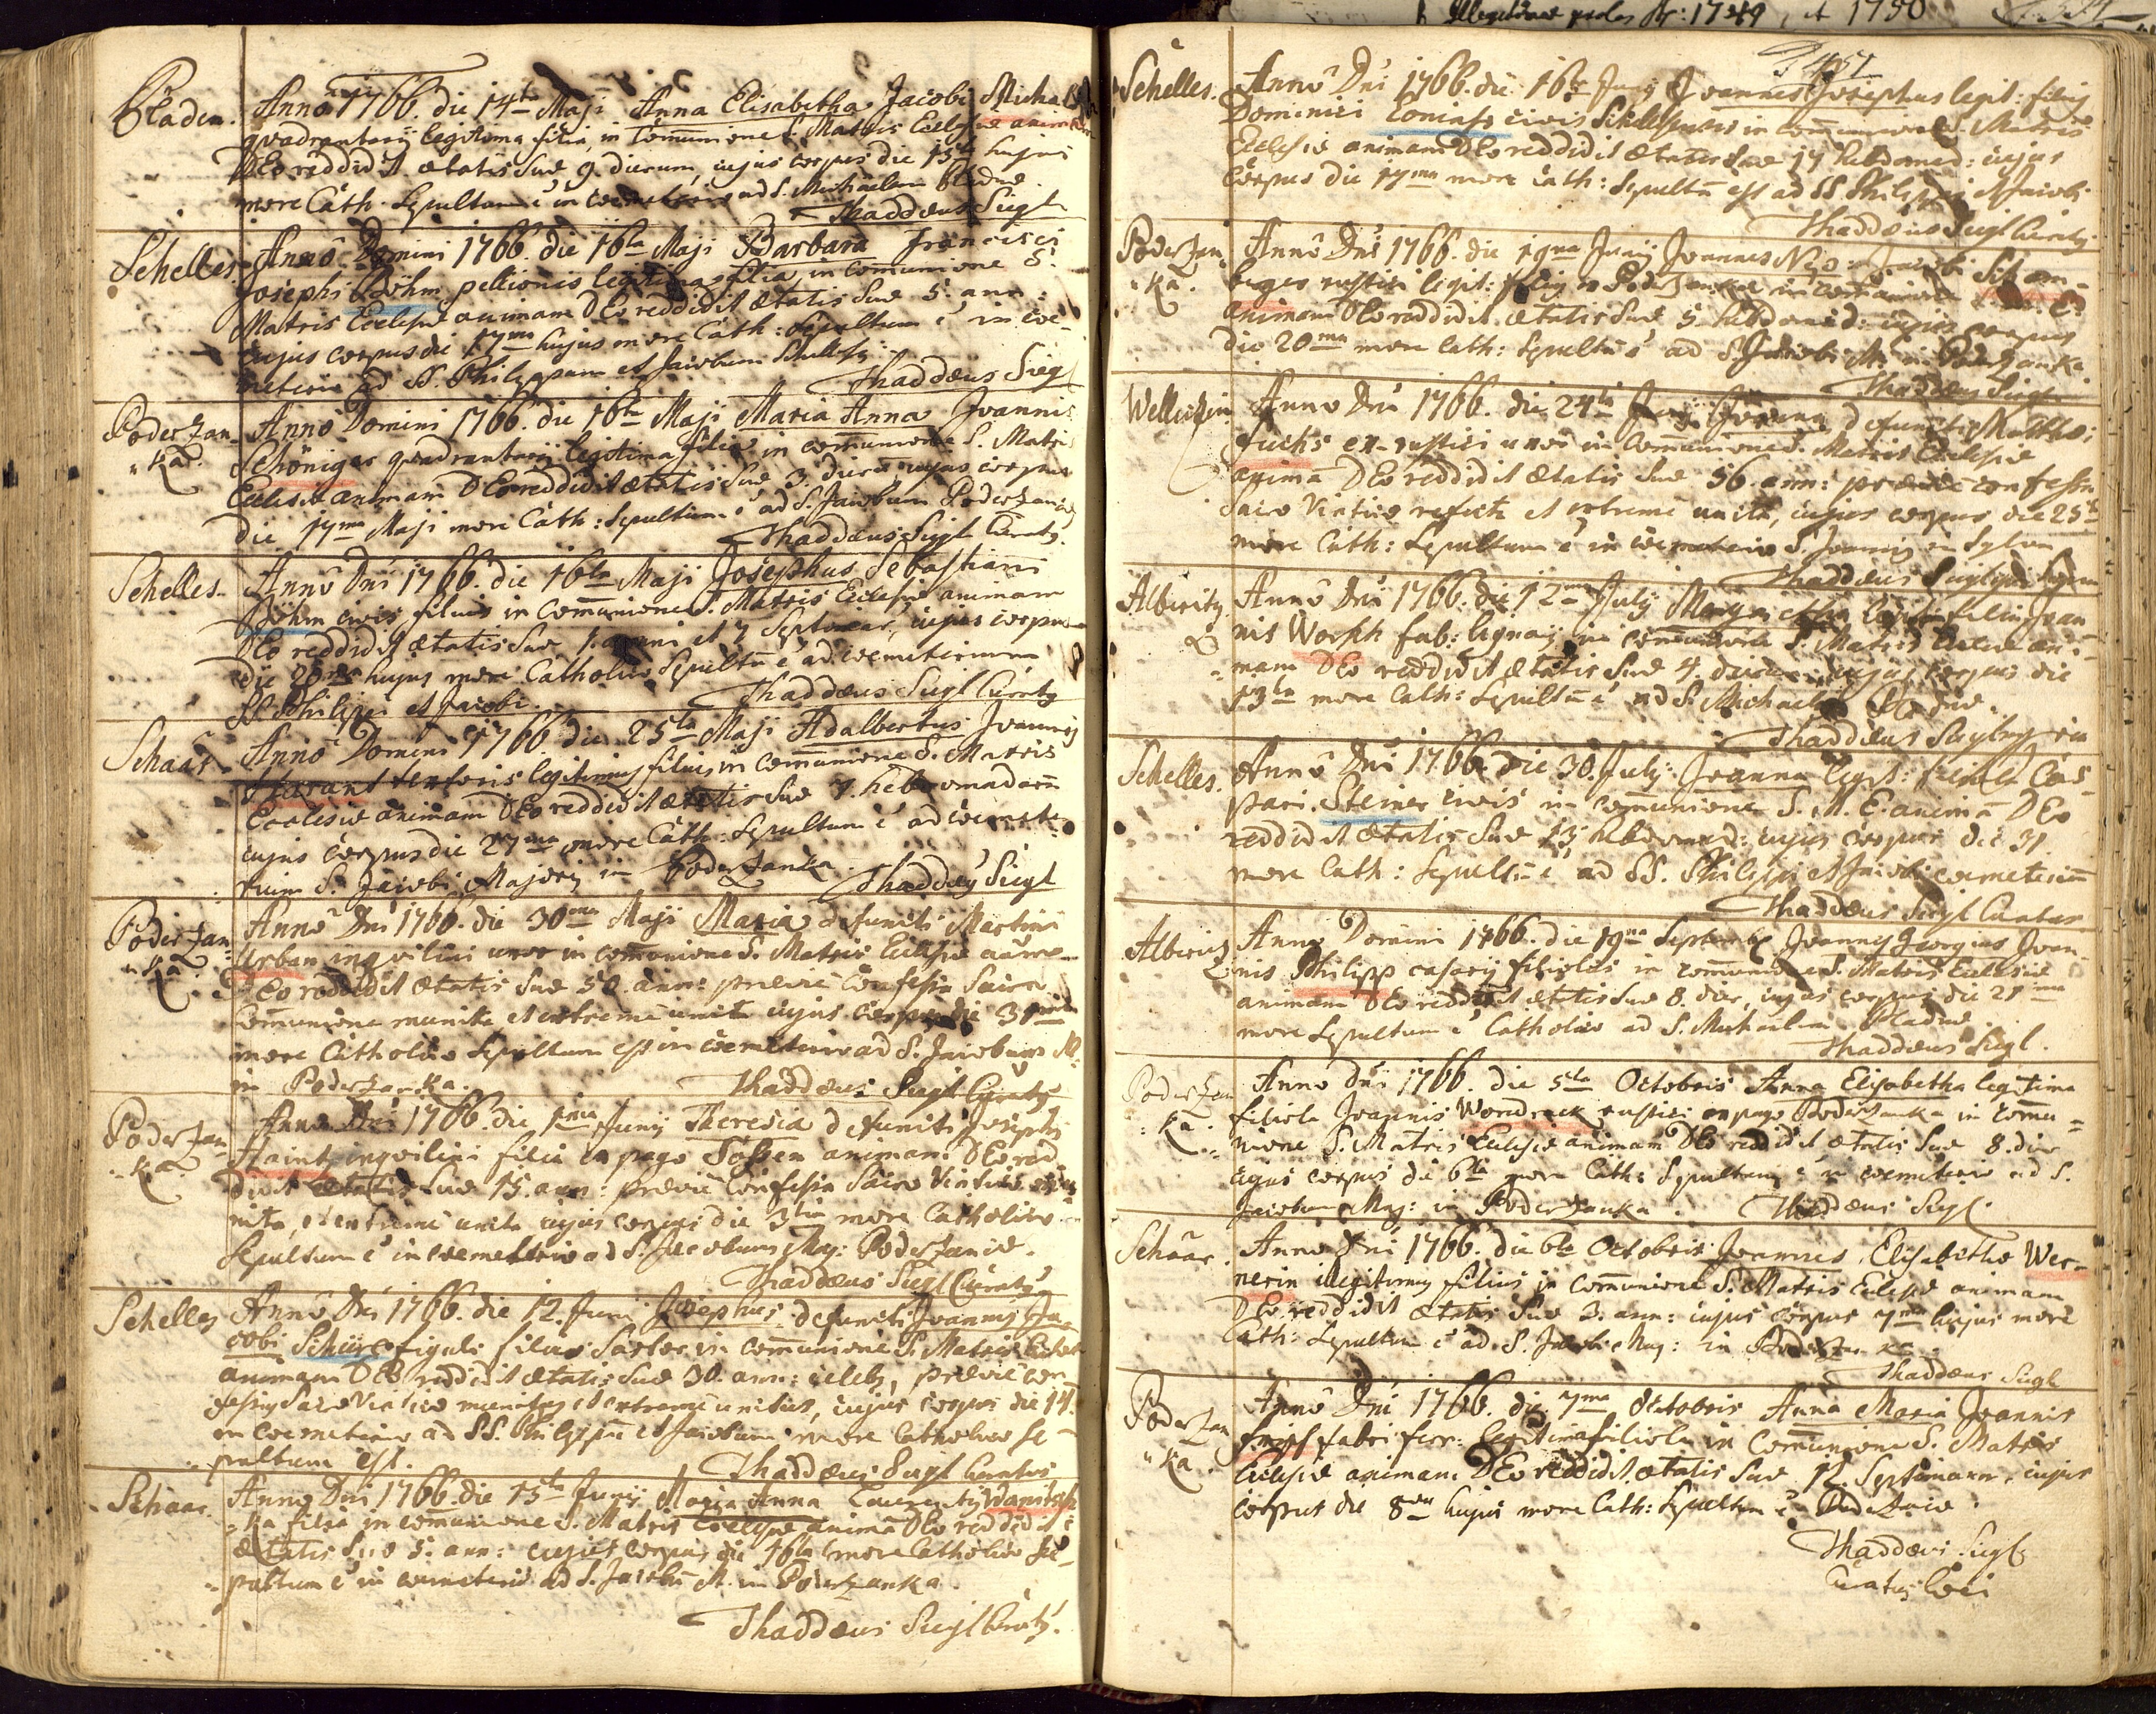 Bladen.
Anno 1766. die 14ta Maji Anna Elisabetha Jacobi
quadrantarij legitima filia, in Comunione S. Matris Ecclesiæ animam
DEo reddidit ætatis suæ 9. dierum, cujus corpus die 15ta hujus
more Cath. Sepultum ē in coemeterio ad S. Michaelem Bladnæ.
Thaddæus Siegl
Schelles.
Anno Domini 1766. die 16ta Maji Barbara Francisci
Josephi Böhm pellionis legitima filia in Comunione S.
Matris Ecclesiæ animam DEo reddidit ætatis suæ 5. ann:
cujus corpus die 17ma hujus more Cath: Sepultum ē in coe-
meterio ad SS. Philippum et Jacobum
Thaddæus Siegl
Poderzan-
ka.
Anno Domini 1766. die 16ta Maji Maria Anna Joannis
Schöniger quadrantarij legitima filia in comunione S. Matris
Ecclesiæ animam DEo reddidit ætatis suæ 3. cujus corpus
die 17ma Maji more Cath: Sepultum ē ad S. Jacobum
Thaddæus Siegl Curatg.
Schelles.
Anno Dni 1766. die 16ta Maji Josephus Sebastiani
Böhm civis filius in Comunione S. Matris Ecclesiæ animam
DEo reddidit ætatis suæ 1. anni et 7 cujus corpus
die hujus more Catholico Sepultū ē ad coemeterium
SS Philippi et Jacobi.
Thaddæus Siegl Curatg
Schaar.
Anno Domini 1766. die 25ta Maji Adalbertus Joannis
legitimus filius in Comunione S. Matris
Ecclesiæ animam DEo reddidit ætatis suæ 7. hebdomadarū
cujus corpus die 27ma more Cath: Sepultum ē ad coemete-
rium S. Jacobi Majoris in Poderzanka.
Thaddæg Siegl
Poderzan-
ka.
Anno Dni 1766. die 30ma Maji Maria defuncti Martini
Urban inquilini uxor in comunione S. Matris Ecclesiæ
DEo reddidit ætatis suæ 50. ann: præviè Confessa Sacra
Comunione munita et extremè uncta cujus corpus die 31
more Catholico Sepultum est in coemeterio ad S. Jacobum M.
in Poderzanka.
Thaddæus Siegl Curatg
Poderzan-
ka
Anno Dni 1766. die Junij Theresia defuncti Josephi
inquilini filia ex pago animam DEo red
didit ætatis suæ 15. ann: præviè Confessa Sacro Viatico
nita, et extremè uncta cujus corpus die 3tia more Catholico
Sepultum ē in coemeterio ad S. Jacobum Maj: Poderzanæ.
Thaddæus Siegl Curatg
Schelles
Anno Dni 1766. die 12. Junij Josephus defuncti Joannis Ja-
cobi figuli filius Sartor in comunione S. Matris
animam DEo reddidit ætatis suæ 30. ann: celebs, præviè con-
fessus Sacro Viatico munitus et extremè unctus, cujus corpus die 14.
in coemeterio ad SS. Philippū et Jacobum more Catholico se-
pultum est.
Thaddæus Siegl Curatus
Schaar.
Anno Dni 1766. die 15ta Junij Maria Anna Laurentij
ka filia in comunione S. Matris Ecclesiæ animā DEo reddidit
ætatis suæ 5. ann: cujus corpus die 16ta more Catholico se-
pultum ē in coemeterio ad S. Jacobū M. in Poderzanka.
Thaddæus Siegl Curatg.
Illegitimæ proles Ao: 1749, et 1750
Schelles.
Anno Dni 1766. die 16ta Junij Joannes Josephus legit: filius
Dominici civis in comunione S. Matris
Ecclesiæ animam DEo reddidit ætatis suæ 14 hebdomad: cujus
corpus die 17ma more Cath: Sepultū est ad SS Philippi et Jacobi
Thaddæus Siegl Curatg
Poderzan-
ka.
Anno Dni 1766. die 19na Junij Joannes Jacobi Scham-
berger rustici legit: filius
animam DEo reddidit ætatis suæ 5. hebdomad: cujus corpus
die 20ma more Cath: Sepultū ē ad S. Jacobi M. in Poderzanka
Thaddæus Siegl
Anno Dni 1766. die 24ta defuncti Matthæi
Fuchs ex-rustici uxor in Comunione S. Matris Ecclesiæ
animā DEo reddidit ætatis suæ 56. ann: præviè confessa
Sacro Viatico refecta et extremè uncta, cujus corpus die 25ta
more Cath: Sepultum ē in coemeterio S. Joannis in Sylva
Thaddæus Siegl
Albericz.
Anno Dni 1766. die 12ma Julij Margaretha filia Joan
nis Worsch fab: lignarij in comunione S. Matris ani-
mam DEo reddidit ætatis suæ 4. dierum, cujus corpus die
13tia more Cath: Sepultū ē ad S. Michaelem Bladnæ.
Thaddæus Siegl
Schelles.
Anno Dni 1766. die 30. Julij. Joanna legit: filiola Cas-
pari Steiner civis in comunione S. M. E. animā DEo
reddidit ætatis suæ 13 hebdomad: cujus corpus die 31
more Cath: Sepultū ē ad SS. Philippi et Jacobi coemeterium
Thaddæus Siegl Curatus
Albericz
Anno Domini 1766. die 19na Septembr Joannes Georgius Joan-
nis Philipp casarij filiolus in comunione S. Matris Ecclesiæ
animam DEo reddidit ætatis suæ 8. dier, cujus corpus die 21ma
more Sepultum ē Catholico ad S. Michaelem Bladnæ.
Thaddæus Siegl.
Poderzan
ka.
Anno Dni 1766. die 5ta Octobris Anna Elisabetha legitima
filiola Joannis Wondrack rustici ex pago Poderzanka in comu-
nione S. Matris Ecclesiæ animam DEo reddidit ætatis suæ 8. dier
cujus corpus die 6ta more Cath: Sepultum ē in coemeterio ad S.
Jacobum Maj: in Poderzanka.
Thaddæus Siegl.
Schaar.
Anno Dni 1766. die 6ta Octobris Joannes, Elisabethæ Wer-
nerin illegitimus filius in Comunione S. Matris Ecclesiæ animam
DEo reddidit ætatis suæ 3. ann: cujus corpus 7ma hujus more
Cath: Sepultum ē ad S. Jacobi Maj: in Poderzanka.
Thaddæus Siegl
Poderzan
ka.
Anno Dni 1766. die 7ma Octobris Anna Maria Joannis
fabri ferr: legitima filiola in Comunione S. Matris
Ecclesiæ animam DEo reddidit ætatis suæ 12. Septimanar, cujus
corpus die 8va hujus more Cath: Sepultum ē Poderzanæ.
Thaddæus Siegl
Curatus loci